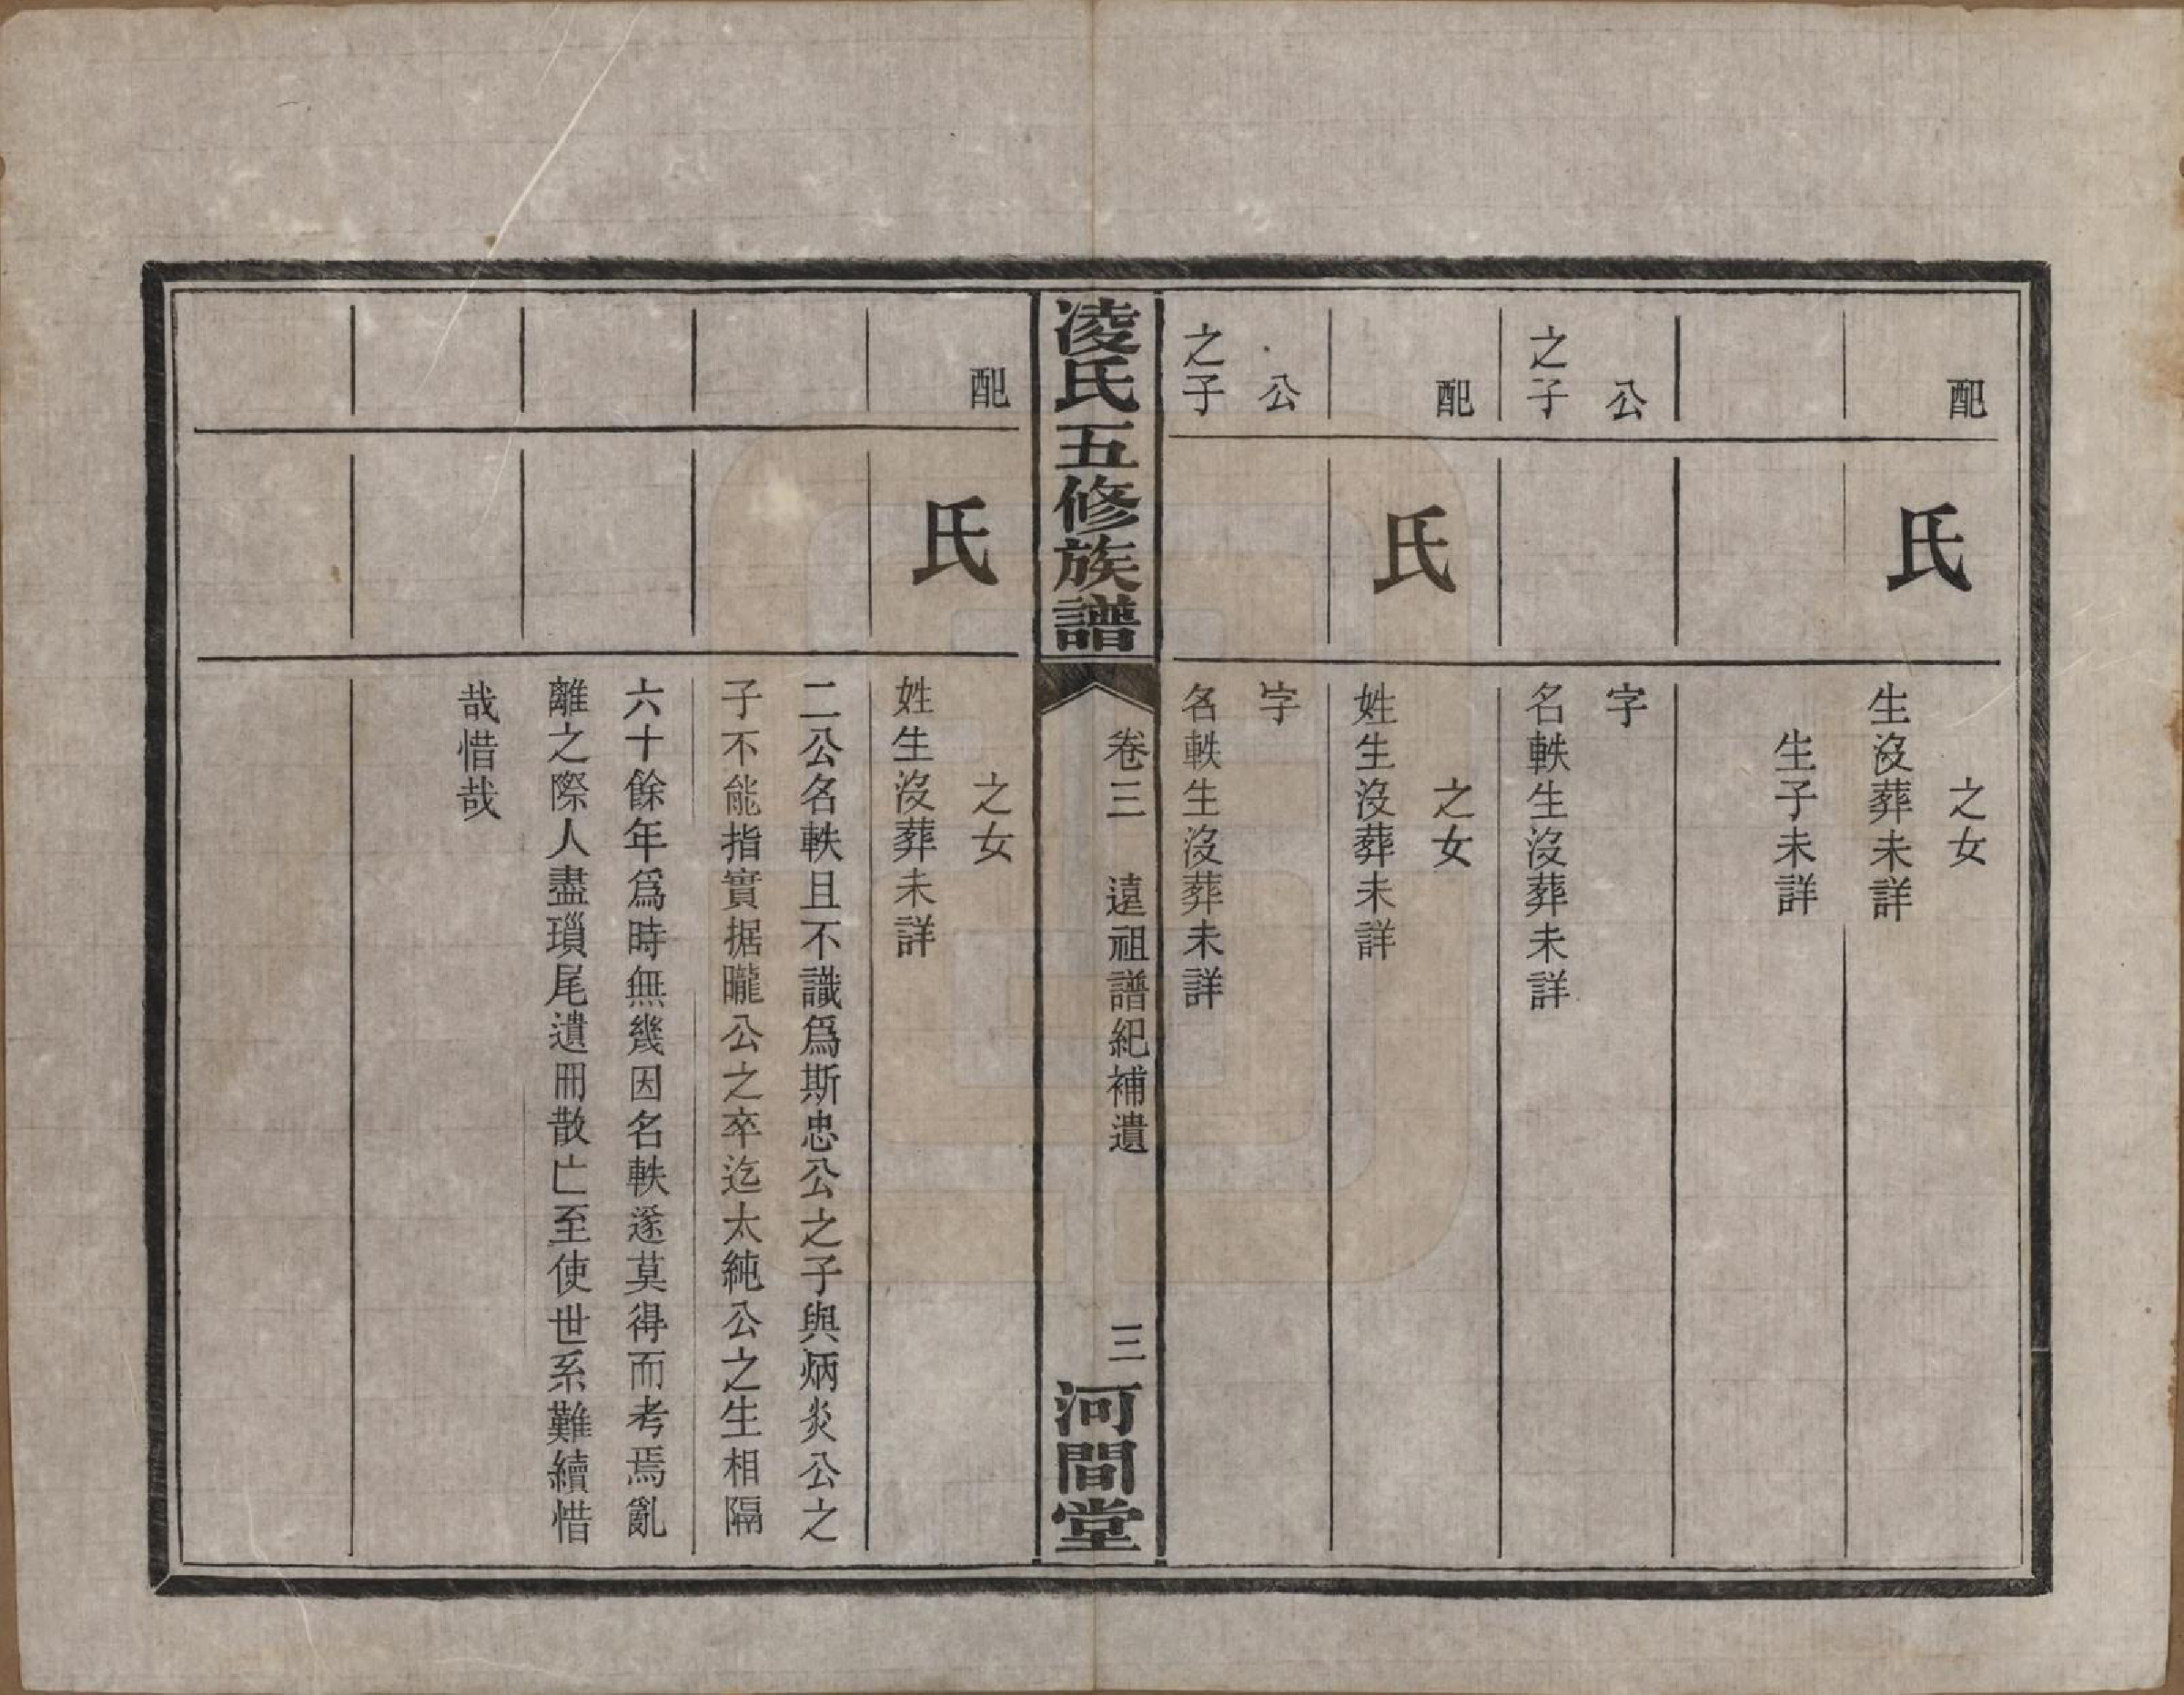 配
氏
之女
生沒葬未詳
生子未詳
公
之子
字
名軼生沒葬未詳
配
氏
之女
姓生沒葬未詳
公
之子
字
名軼生沒葬未詳
凌氏五修族譜
卷三 遠祖譜紀補遺
三
河間堂
配
氏
之女
姓生沒葬未詳
二公名軼且不識爲斯忠公之子與炳炎公之
子不能指實据曨公之卒迄太純公之生相隔
六十餘年爲時無幾因名軼遂莫得而考焉亂
離之際人盡瑣尾遺冊散亡至使世系難續惜
哉惜哉